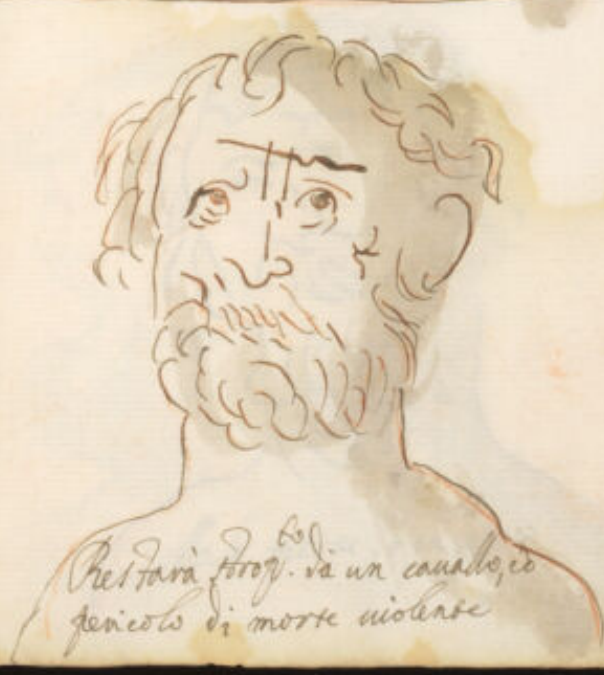 Restarà strop.to da un cavallo, cõ
pericolo di morte violente